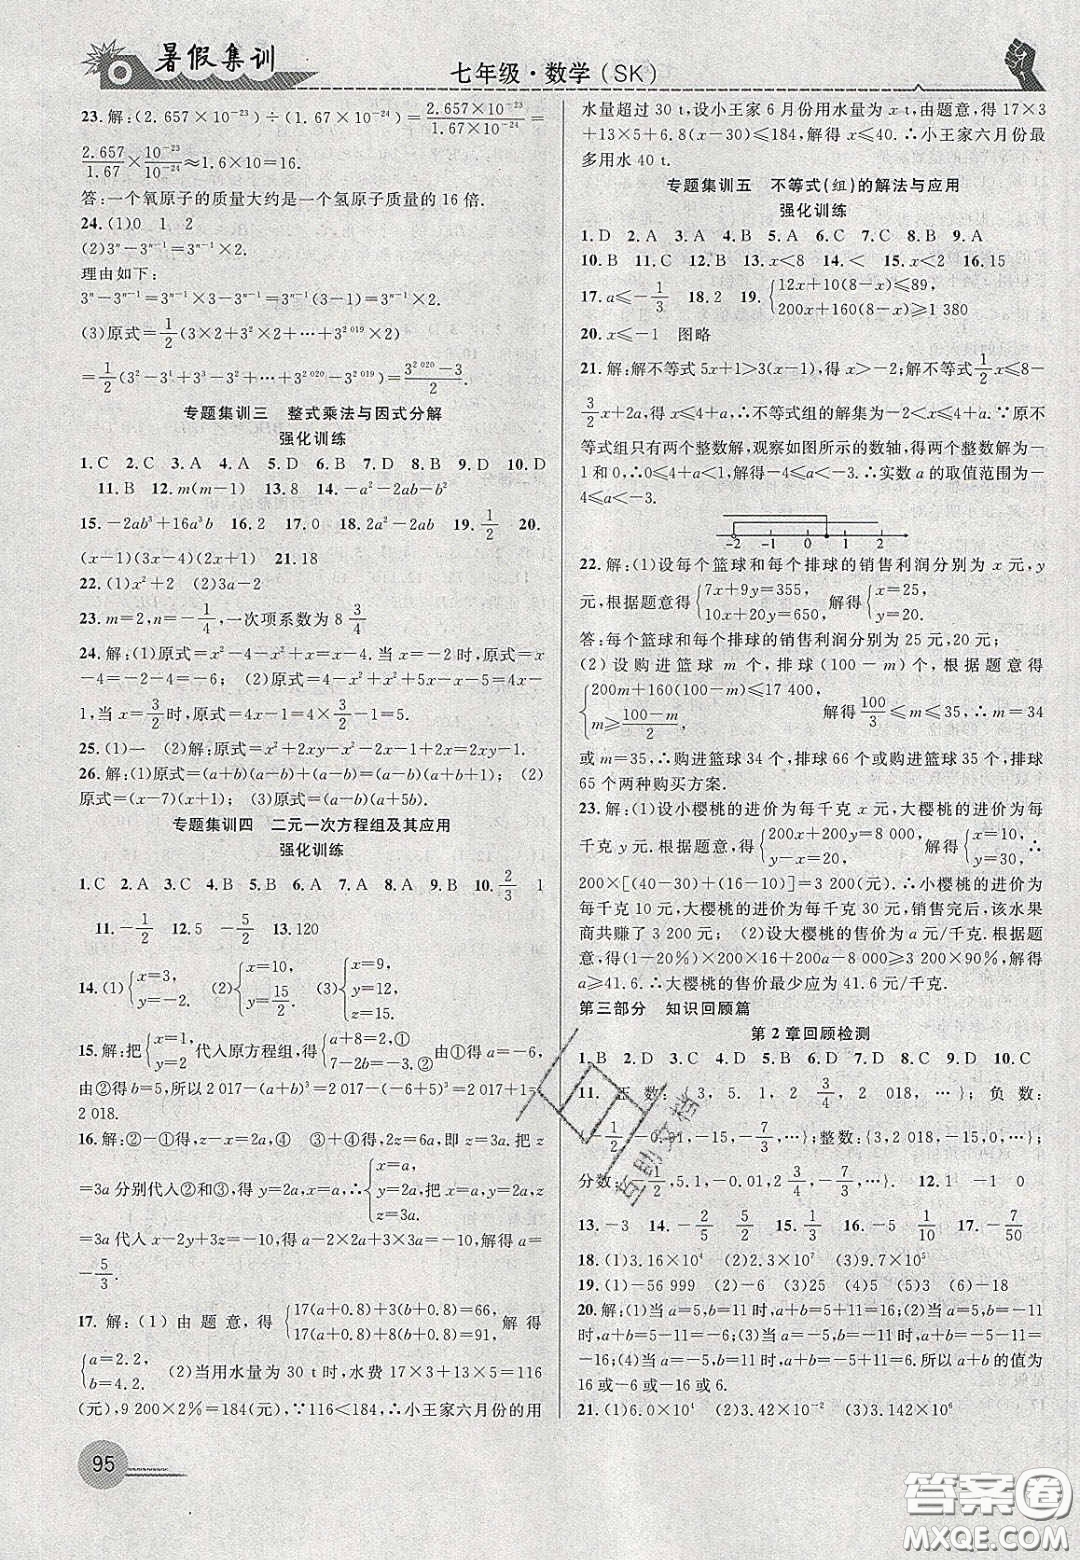 暑假集训
七年级·数学(SK)
23.解:(2.657×10⁻²³)÷(1.67×10⁻²⁴)=2.657×10⁻²³/1.67×10⁻²⁴=
2.657/1.67×10⁻²³/10⁻²⁴≈1.6×10=16.
答:一个氧原子的质量大约是一个氢原子质量的 16 倍.
24.(1)0 1 2
(2)3ⁿ-3ⁿ⁻¹=3ⁿ⁻¹×2.
理由如下:
3ⁿ-3ⁿ⁻¹=3×3ⁿ⁻¹-3ⁿ⁻¹=3ⁿ⁻¹×2.
(3)原式=1/2(3×2+3²×2+…+3²⁰¹⁹×2)
=1/2(3²-3¹+3³-3²+…+3²⁰²⁰-3²⁰¹⁹)=(3²⁰²⁰-3)/2.
专题集训三 整式乘法与因式分解
强化训练
1.C 2.C 3.A 4.A 5.D 6.B 7.D 8.B 9.D 10.D
11.B 12.m(m-1) 13.8 14.-a²-2ab-b²
15.-2ab³+16a³b 16.2 17.0 18.2a²-2ab 19.1/2 20.
(x-1)(3x-4)(2x-1) 21.18
22.(1)x²+2 (2)3a-2
23.m=2,n=-1/4,一次项系数为8 3/4
24.解:(1)原式=x²-4-x²+x=x-4,当 x=-2时,原式=x
-4=-2-4=-6; (2)原式=4-x²+x²+5x-x-5=4x-
1,当 x=3/2时,原式=4×3/2-1=5.
25.(1)一 (2)解:原式=x²+2xy-x²-2x+2x=2xy.
26.解:(1)原式=(a+b)(a-b)+(a+b)=(a+b)(a-b+1); (2)
原式=(x-7)(x+1); (3)原式=(a-b)(a+5b).
专题集训四 二元一次方程组及其应用
强化训练
1.C 2.A 3.D 4.B 5.B 6.A 7.A 8.A 9.B 10.2/3 1
11.-1/2 12.5 -5/2 13.120
14.(1){x=3, y=-2. (2){x=10, y=15/2. (3){x=9, y=12, z=15.
15.解:把{x=1, y=2代入原方程组,得{a+8=2,① 7-2b=-3.②由①得 a=-6,
由②得 b=5,所以 2 017-(a+b)²⁰¹⁷=2 017-(-6+5)²⁰¹⁷=2 017+1=
2 018.
16.解:②-①得 z-x=2a ④ ③+④得,2z=6a,即 z=3a.把 z
=3a 分别代入②和③,得 y=2a,x=a,∴{x=a, y=2a, z=3a.把 x=a,y=2a,z
=3a 代入 x-2y+3z=-10,得 a-2×2a+3×3a=-10,解得 a=
-5/3.
17.解:(1)由题意,得{17(a+0.8)+3(b+0.8)=66, 17(a+0.8)+8(b+0.8)=91,解得
{a=2.2, b=4.2. (2)当用水量为 30 t 时,水费 17×3+13×5=116
(元),9 200×2%=184(元),∵116<184,∴小王家六月份的用
水量超过 30 t,设小王家 6 月份用水量为 x t,由题意,得 17×3
+13×5+6.8(x-30)≤184,解得 x≤40.∴小王家六月份最
多用水 40 t.
专题集训五 不等式(组)的解法与应用
强化训练
1.D 2.A 3.A 4.A 5.A 6.C 7.C 8.B 9.A
10.B 11.C 12.B 13.x<8 14.< 15.x<2 16.15
17.a≤-1/3 18.2 19.{12x+10(8-x)≤89, 200x+160(8-x)≥1 380
20.x≤-1 图略
21.解:解不等式 5x+1>3(x-1)得 x>-2;解不等式1/2x≤8-
3/2x+2a,得 x≤4+a,∴不等式组的解集为-2<x≤4+a.∵原不
等式组只有两个整数解,观察如图所示的数轴,得两个整数解为-
1和0,∴0≤4+a<1,解得-4≤a<-3.∴实数 a 的取值范围为-
4≤a<-3.
-2 -1 0 1 2
22.解:(1)设每个篮球和每个排球的销售利润分别为 x 元,y
元,根据题意得{7x+9y=355, 10x+20y=650,解得{x=25, y=20.
答:每个篮球和每个排球的销售利润分别为 25 元,20 元;
(2)设购进篮球 m 个,排球(100-m)个,根据题意得
{200m+160(100-m)≤17 400, m≥(100-m)/2 解得100/3≤m≤35,∴m=34
或 m=35,∴购进篮球 34 个,排球 66 个或篮球 35 个,排球
65 个两种购买方案.
23.解:(1)设小樱桃的进价为每千克 x 元,大樱桃的进价为每
千克 y 元.根据题意,得{200x+200y=8 000, y-x=20,解得{x=10, y=30,∴
200×[(40-30)+(16-10)]=3 200(元).∴小樱桃的进价为
每千克 10 元,大樱桃的进价为每千克 30 元,销售完后,该水果
商共赚了 3 200 元; (2)设大樱桃的售价为 a 元/千克.根据题
意,得(1-20%)×200×16+200a-8 000≥3 200×90%,解得
a≥41.6.∴大樱桃的售价最少应为 41.6 元/千克.
第三部分 知识回顾篇
第 2 章回顾检测
1.B 2.D 3.D 4.C 5.D 6.B 7.D 8.C 9.D 10.C
11.正数:3, 5.1, 2 3/4, 2 018, …}; 负数:
-1/2,-0.01,-15,-7/3,…};整数:{3,2 018,-15,…};
分数: 1/2,5.1,-0.01,2 3/4,…}. 12.1 -1 0
13.-3 14.-2/5 5/2 15.1/3 16.-5 1/10 17.-7/50
18.(1)3.16×10⁴ (2)2.53×10⁷ (3)9.7×10⁶
19.(1)-56 999 (2)-6 (3)25 (4)10
20.解:(1)当 a=5,b=11 时,a+b=5+11=16; (2)当 a=5,b=-11
时,a+b=5-11=-6;(3)当 a=-5,b=-11 时,a+b=-5-11=
-16;(4)当 a=-5,b=11 时,a+b=-5+11=6.所以 a+b 的值为
16 或-6 或-16 或 6.
21.(1)6.0×10⁵ (2)3.42×10⁻² (3)3.142×10⁶
95
答案圈
MXQE.COM